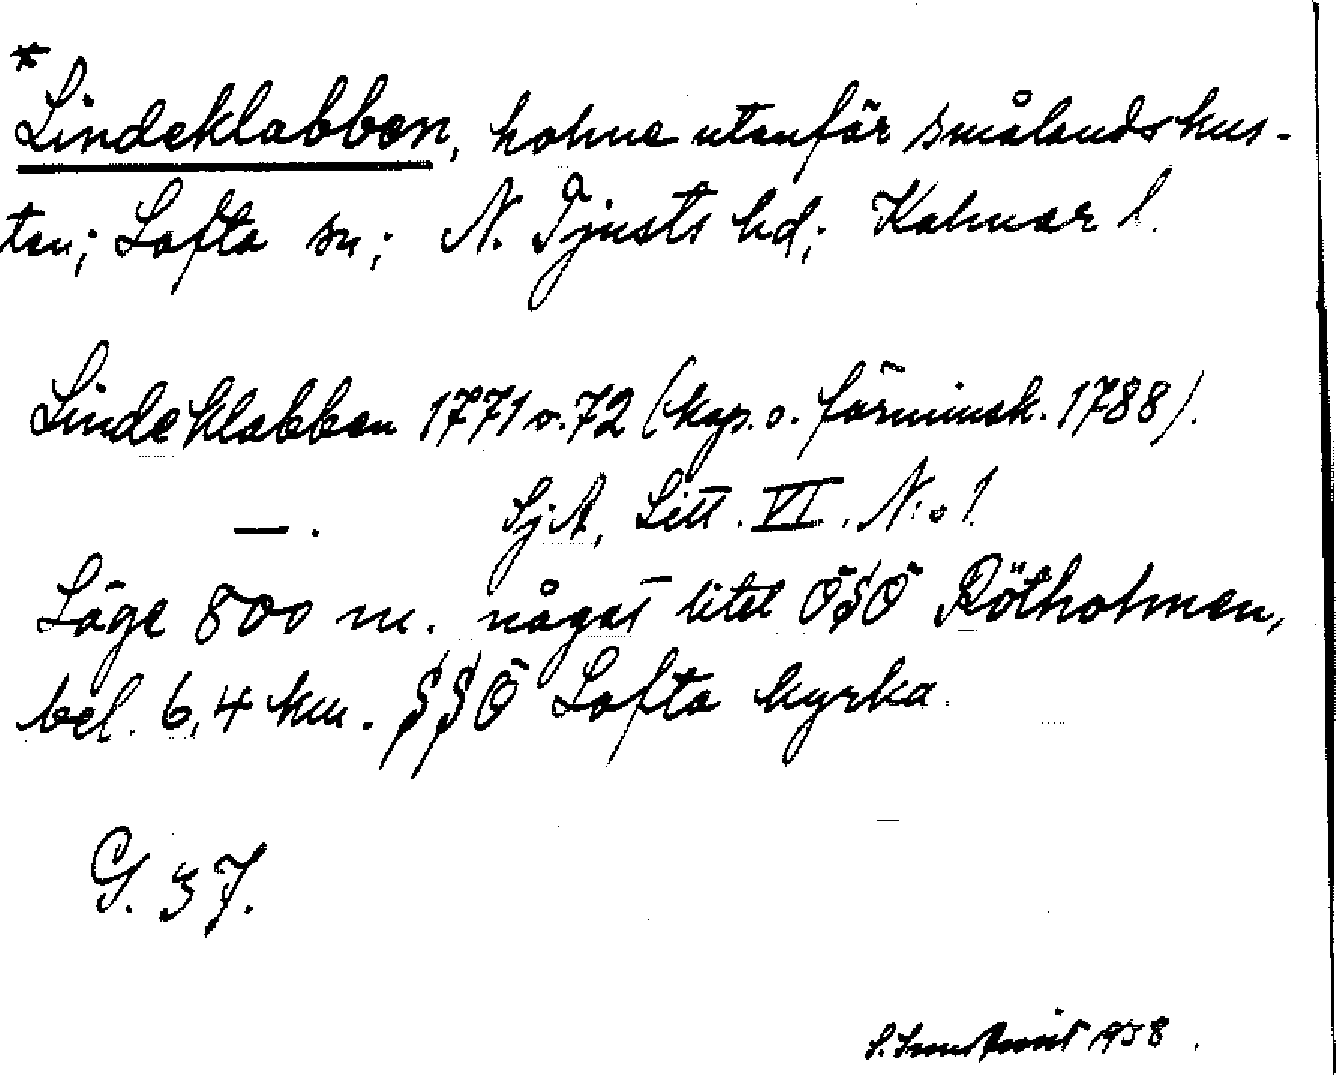 *
Lindeklabben, holme utanför smålandskus-
ten; Lofta sn; N. Tjusts hd; Kalmar l.
Lindeklabben 1771 o. 72 (kop. o. förminsk. 1788).
—. SjA, Litt. VI. No 1.
Läge 800 m. något litet ÖSÖ Rötholmen,
bel. 6,4 km. SSÖ Lofta kyrka.
G. 37.
1938.